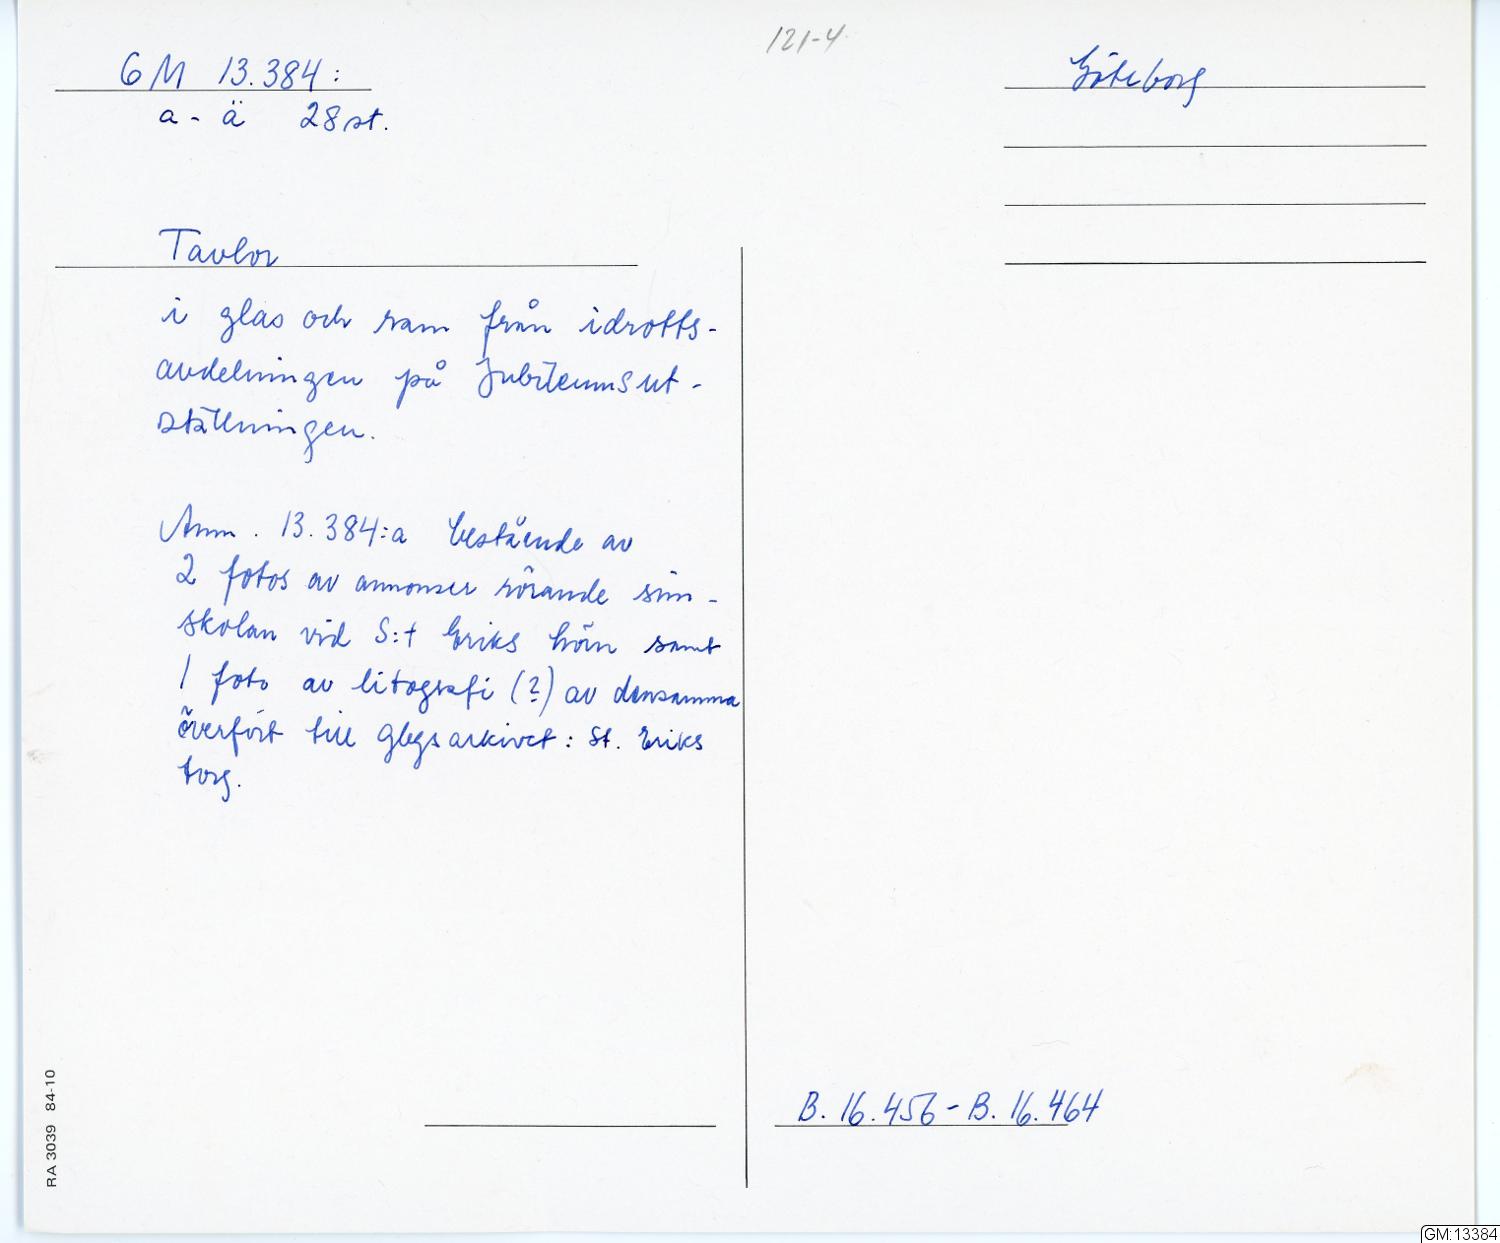 121-4
GM 13.384:
Göteborg
a - ä 28 st.
Tavlor
i glas och ram från idrotts-
avdelningen på Jubileumsut-
ställningen.
Anm. 13.384:a bestående av
2 fotos av annonser rörande sim-
skolan vid S:t Eriks hörn samt
1 foto av litografi (?) av densamma
överfört till gbgsarkivet: St. Eriks
torg.
B. 16.456 - B. 16.464
RA 3039 84-10
GM:13384